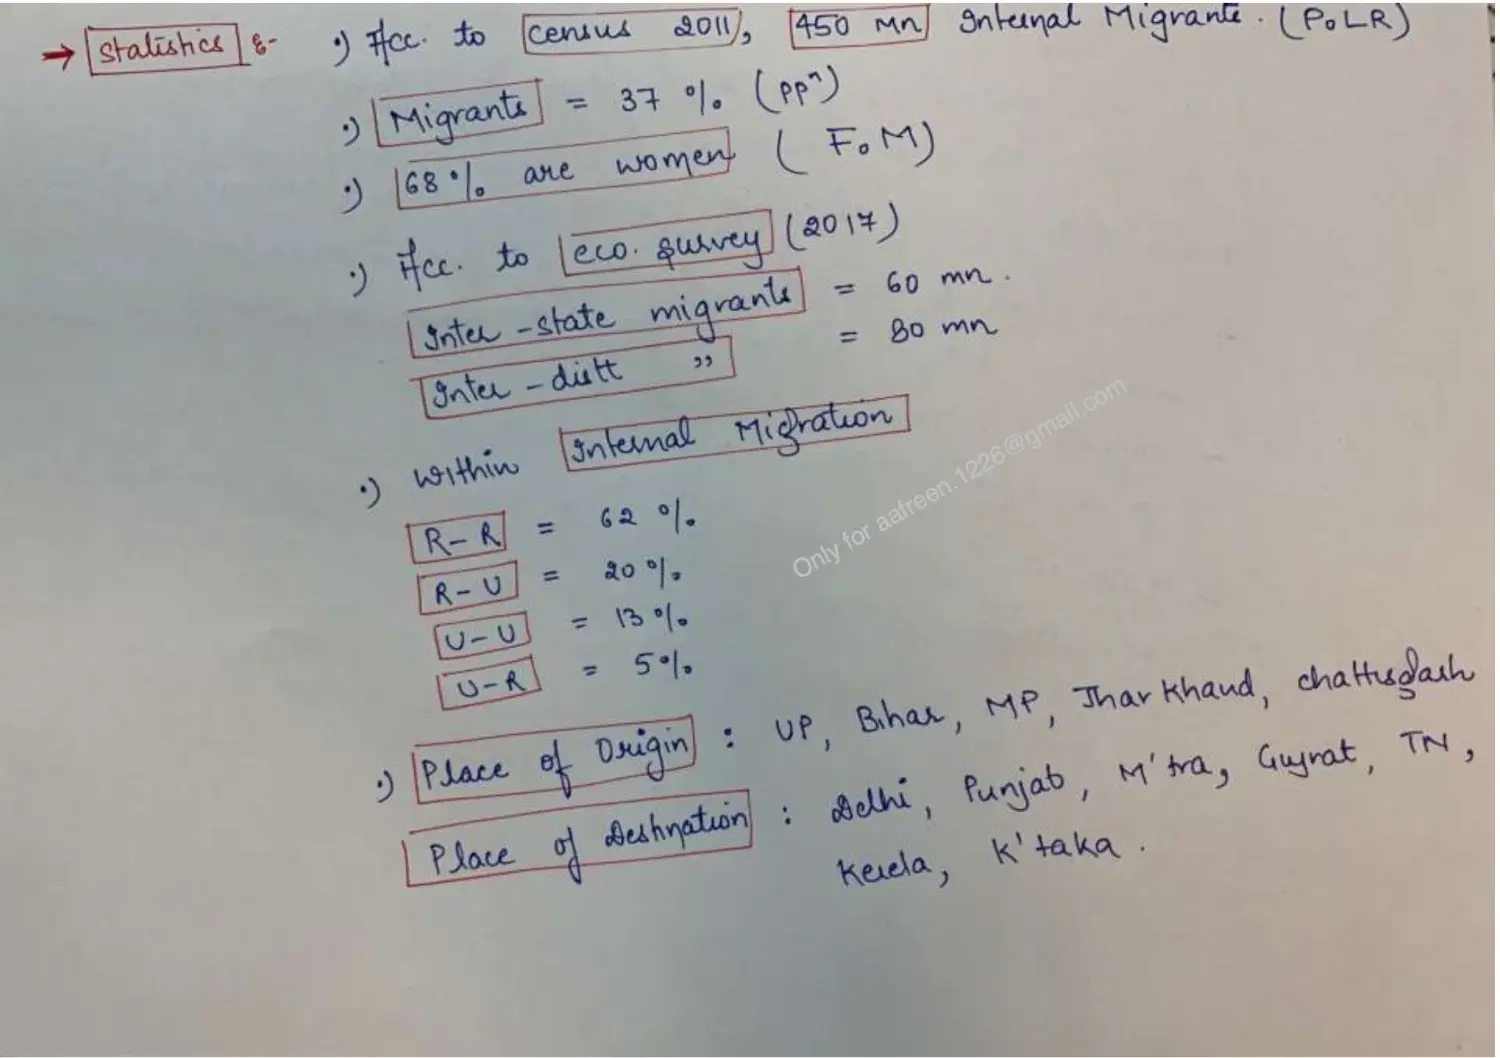 → Statistics :- •) Acc. to census 2011, 450 Mn Internal Migrants. (PoLR)
•) Migrants = 37 % (ppⁿ)
•) 68% are women ( FoM)
•) Acc. to eco. survey (2017)
Inter-state migrants = 60 mn.
Inter-distt " = 80 mn
•) within Internal Migration
R-R = 62 %
R-U = 20%
U-U = 13%
U-R = 5%
•) Place of Origin : UP, Bihar, MP, Jharkhand, chattisgarh
Place of Destination : Delhi, Punjab, M'tra, Gujrat, TN,
Kerela, K'taka.
Only for aafreen.1226@gmail.com